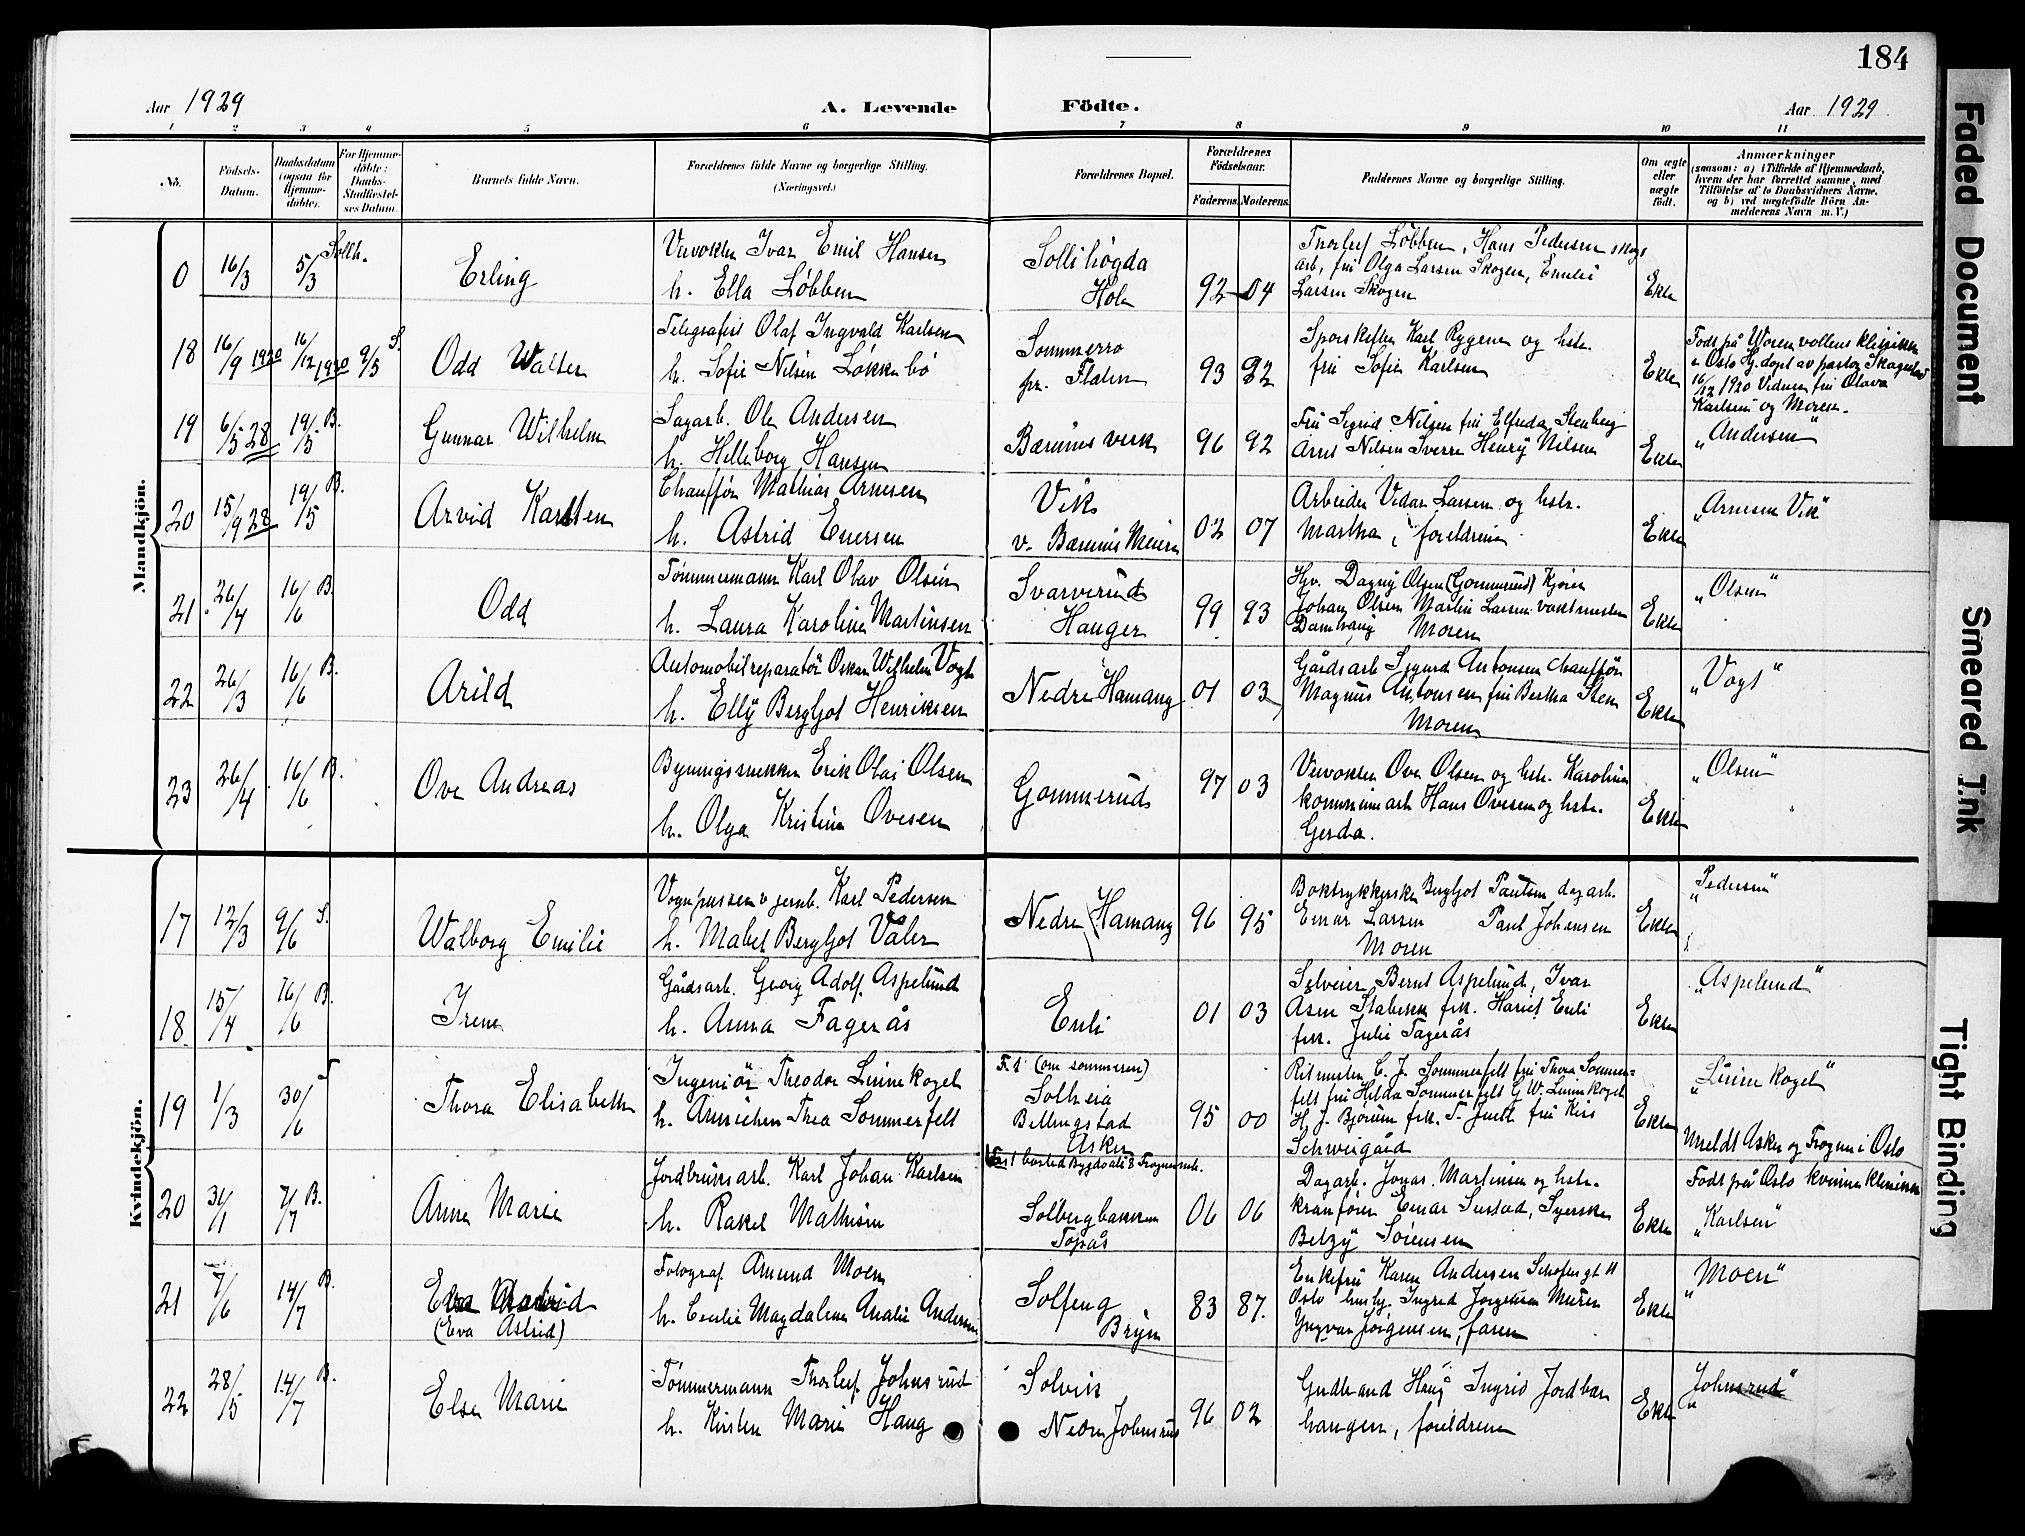 184
Aar 1929
A. Levende Födte.
Aar 1929
1 2 3 4 5 6 7 8 9 10 11
No.
Födsels-
Datum.
Daabsdatum
(ogsaa for
Hjemme-
döbte).
For Hjemme-
döbte:
Daabs-
Stadfæstel-
ses Datum
Barnets fulde Navn.
Forældrenes fulde Navne og borgerlige Stilling.
(Næringsvei.)
Forældrenes Bopæl.
Forældrenes
Födselsaar.
Faderens. Moderens.
Faddernes Navne og borgerlige Stilling.
Om ægte
eller
uægte
födt.
Anmærkninger
(saasom: a) i Tilfælde af Hjemmedaab,
hvem der har forrettet samme, med
Tilföielse af to Daabsvidners Navne,
og b) ved uægtefödte Börn An-
melderens Navn m. V.)
Mandkjön.
0 16/3 5/3 Sollh. Erling
Veivokter Ivar Emil Hansen
h. Ella Løbben
Sollihøgda
Hole
92 04
Thorleif Løbben, Hans Pedersen skogs
arb, fru Olga Larsen Skogen, Emilie
Larsen Skogen
Ekte
18 16/9 1920 16/12 1920 9/5 S. Odd Walter
Telegrafist Olaf Ingvald Karlsen
h. Sofie Nilsen Løkkebø
Sommerro
pr. Slaten
93 92
Sporskifter Karl Rygene og hstr.
fru Sofie Karlsen
Ekte
Født på Worenvollens klinikk
i Oslo Hj. døpt av pastor
16/12 1920 Vidner fru Olava
Karlsen og Moren.
19 6/5 28 19/5 B. Gunnar Wilhelm
Sagarb. Ole Andersen
h. Helleborg Hansen
Bærums verk
96 92
Fru Sigrid Nilsen fru Elfreda Stenberg
Arne Nilsen Sverre Henry Nilsen
Ekte
"Andersen"
20 15/9 28 19/5 B. Arvid Karsten
Chauffør Mathias Arnesen
h. Astrid Enersen
Vik
v. Bærums Meieri
02 07
Arbeider Vidar Larsen og hstr.
Martha, foreldrene
Ekte
"Arnesen Vik"
21 26/4 16/6 B. Odd
Tømmermann Karl Olav Olsen
h. Laura Karoline Martinsen
Svarverud
Hauger
99 93
Hv. Dagny Olsen (Gommerud) Kjører
Johan Olsen Martin Larsen vaktmester
Moren
Ekte
"Olsen"
22 26/3 16/6 B. Arild
Automobilreparatør Oskar Wilhelm Vogt
h. Elly Bergljot Henriksen
Nedre Hamang
01 03
Gårdsarb Sigurd Antonsen chauffør
Magnus Antonsen fru Bertha Sten
Moren
Ekte
"Vogt"
23 26/4 16/6 B. Ove Andreas
Bygningssnekker Erik Olai Olsen
h. Olga Kristine Ovesen
Gommerud
97 03
Veivokter Ove Olsen og hstr. Karoline
kommunearb Hans Ovesen og hstr.
Gerda.
Ekte
"Olsen"
Kvindekjön.
17 12/3 9/6 S. Walborg Emilie
Vognpusser v jernb. Karl Pedersen
h. Mabel Bergljot Valer
Nedre Hamang
96 95
Boktrykkerske Bergljot Paulsen dagarb.
Einar Larsen Paul Johansen
Moren
Ekte
"Pedersen"
18 15/4 16/6 B. Irene
Gårdsarb. Georg Adolf Aspelund
h. Anna Fagerås
Enli
01 03
Selveier Bernt Aspelund, Ivar
Asen Stabekk frk. Hariet Enli
frk. Julie Fagerås
Ekte
"Aspelund"
19 1/3 30/6 T Thora Elisabeth
Ingeniør Theodor Linnekogel
h. Annichen Thea Sommerfelt
F.t. (om sommeren)
Solheia
Billingstad
Asker
95 00
Ritmester C. J. Sommerfelt fru Thora Sommer-
felt fru Hilda Sommerfelt G. W. Linnekogel
H. J. Bjørum frk. T. Juell fru Kiss
Schweigård
Ekte
"Linnekogel"
Meldt Asker og Frogner i Oslo
20 31/1 7/7 B. Anne Marie
Jordbruksarb. Karl Johan Karlsen
h. Rakel Mathisen
Solbergbakken
Topås
06 06
Dagarb. Jonas Martinsen og hstr.
kranfører Einar Sustad, Syerske
Betzy Sørensen
Ekte
Født på Oslo kvinneklinikk
"Karlsen"
21 7/6 14/7 B. Eva Astrid
(Eva Astrid)
Fotograf Amund Moen
h. Cecilie Magdalene Analie Andersen
Solfeng
Bryn
83 87.
Enkefru Karen Andersen Schofteigt 11
Oslo husbg. Ingrid Jørgensen Murer
Yngvar Jørgensen, faren
Ekte
"Moen"
22 28/5 14/7 B. Else Marie
Tømmermann Thorleif Johnsrud
h. Kirsten Marie Haug
Solvik
Nedre Johnsrud
96 02
Gudbrand Haug Ingrid Jordbær
haugen, foreldrene
Ekte
"Johnsrud"
Faded Document
Smeared Ink
Tight Binding